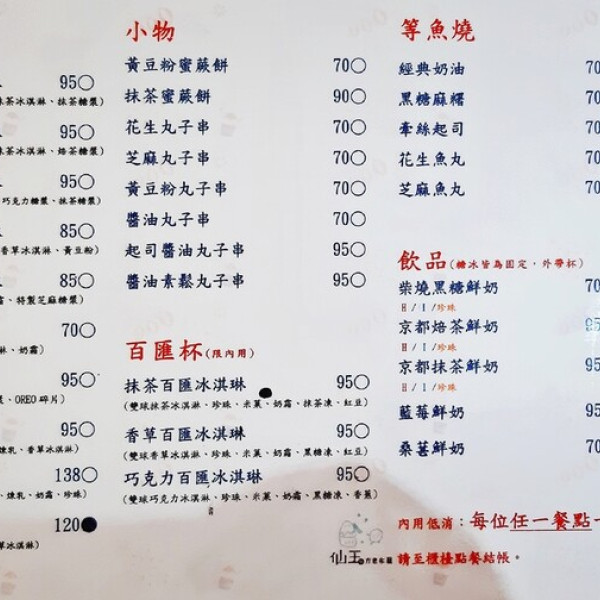 95○
抹茶冰淇淋、抹茶糖漿)
95○
抹茶冰淇淋、焙茶糖漿)
95○
巧克力糖漿、抹茶糖漿)
85○
香草冰淇淋、黃豆粉)
85○
霜、特製芝麻糖漿)
70○
淋、奶霜)
95○
、OREO碎片)
95○
煉乳、香草冰淇淋)
138○
、煉乳、奶霜、珍珠)
120
草冰淇淋)
小物
黃豆粉蜜蕨餅 70○
抹茶蜜蕨餅 90○
花生丸子串 70○
芝麻丸子串 70○
黃豆粉丸子串 70○
醬油丸子串 70○
起司醬油丸子串 95○
醬油素鬆丸子串 95○
百匯杯(限內用)
抹茶百匯冰淇琳 95○
(雙球抹茶冰淇淋、珍珠、米菓、奶霜、抹茶凍、紅豆)
香草百匯冰淇琳 95○
(雙球香草冰淇淋、珍珠、米菓、奶霜、黑糖凍、紅豆)
巧克力百匯冰淇琳 95○
(雙球巧克力冰淇淋、珍珠、米菓、奶霜、黑糖凍、香蕉)
等魚燒
經典奶油 70
黑糖麻糬 70
牽絲起司 70
花生魚丸 70
芝麻魚丸 70
飲品(糖冰皆為固定，外帶杯)
柴燒黑糖鮮奶 70
H / I /珍珠
京都焙茶鮮奶 95
H / I /珍珠
京都抹茶鮮奶 95
H / I /珍珠
藍莓鮮奶 95
桑葚鮮奶 70
內用低消：每位任一餐點
請至櫃檯點餐結帳。
仙王